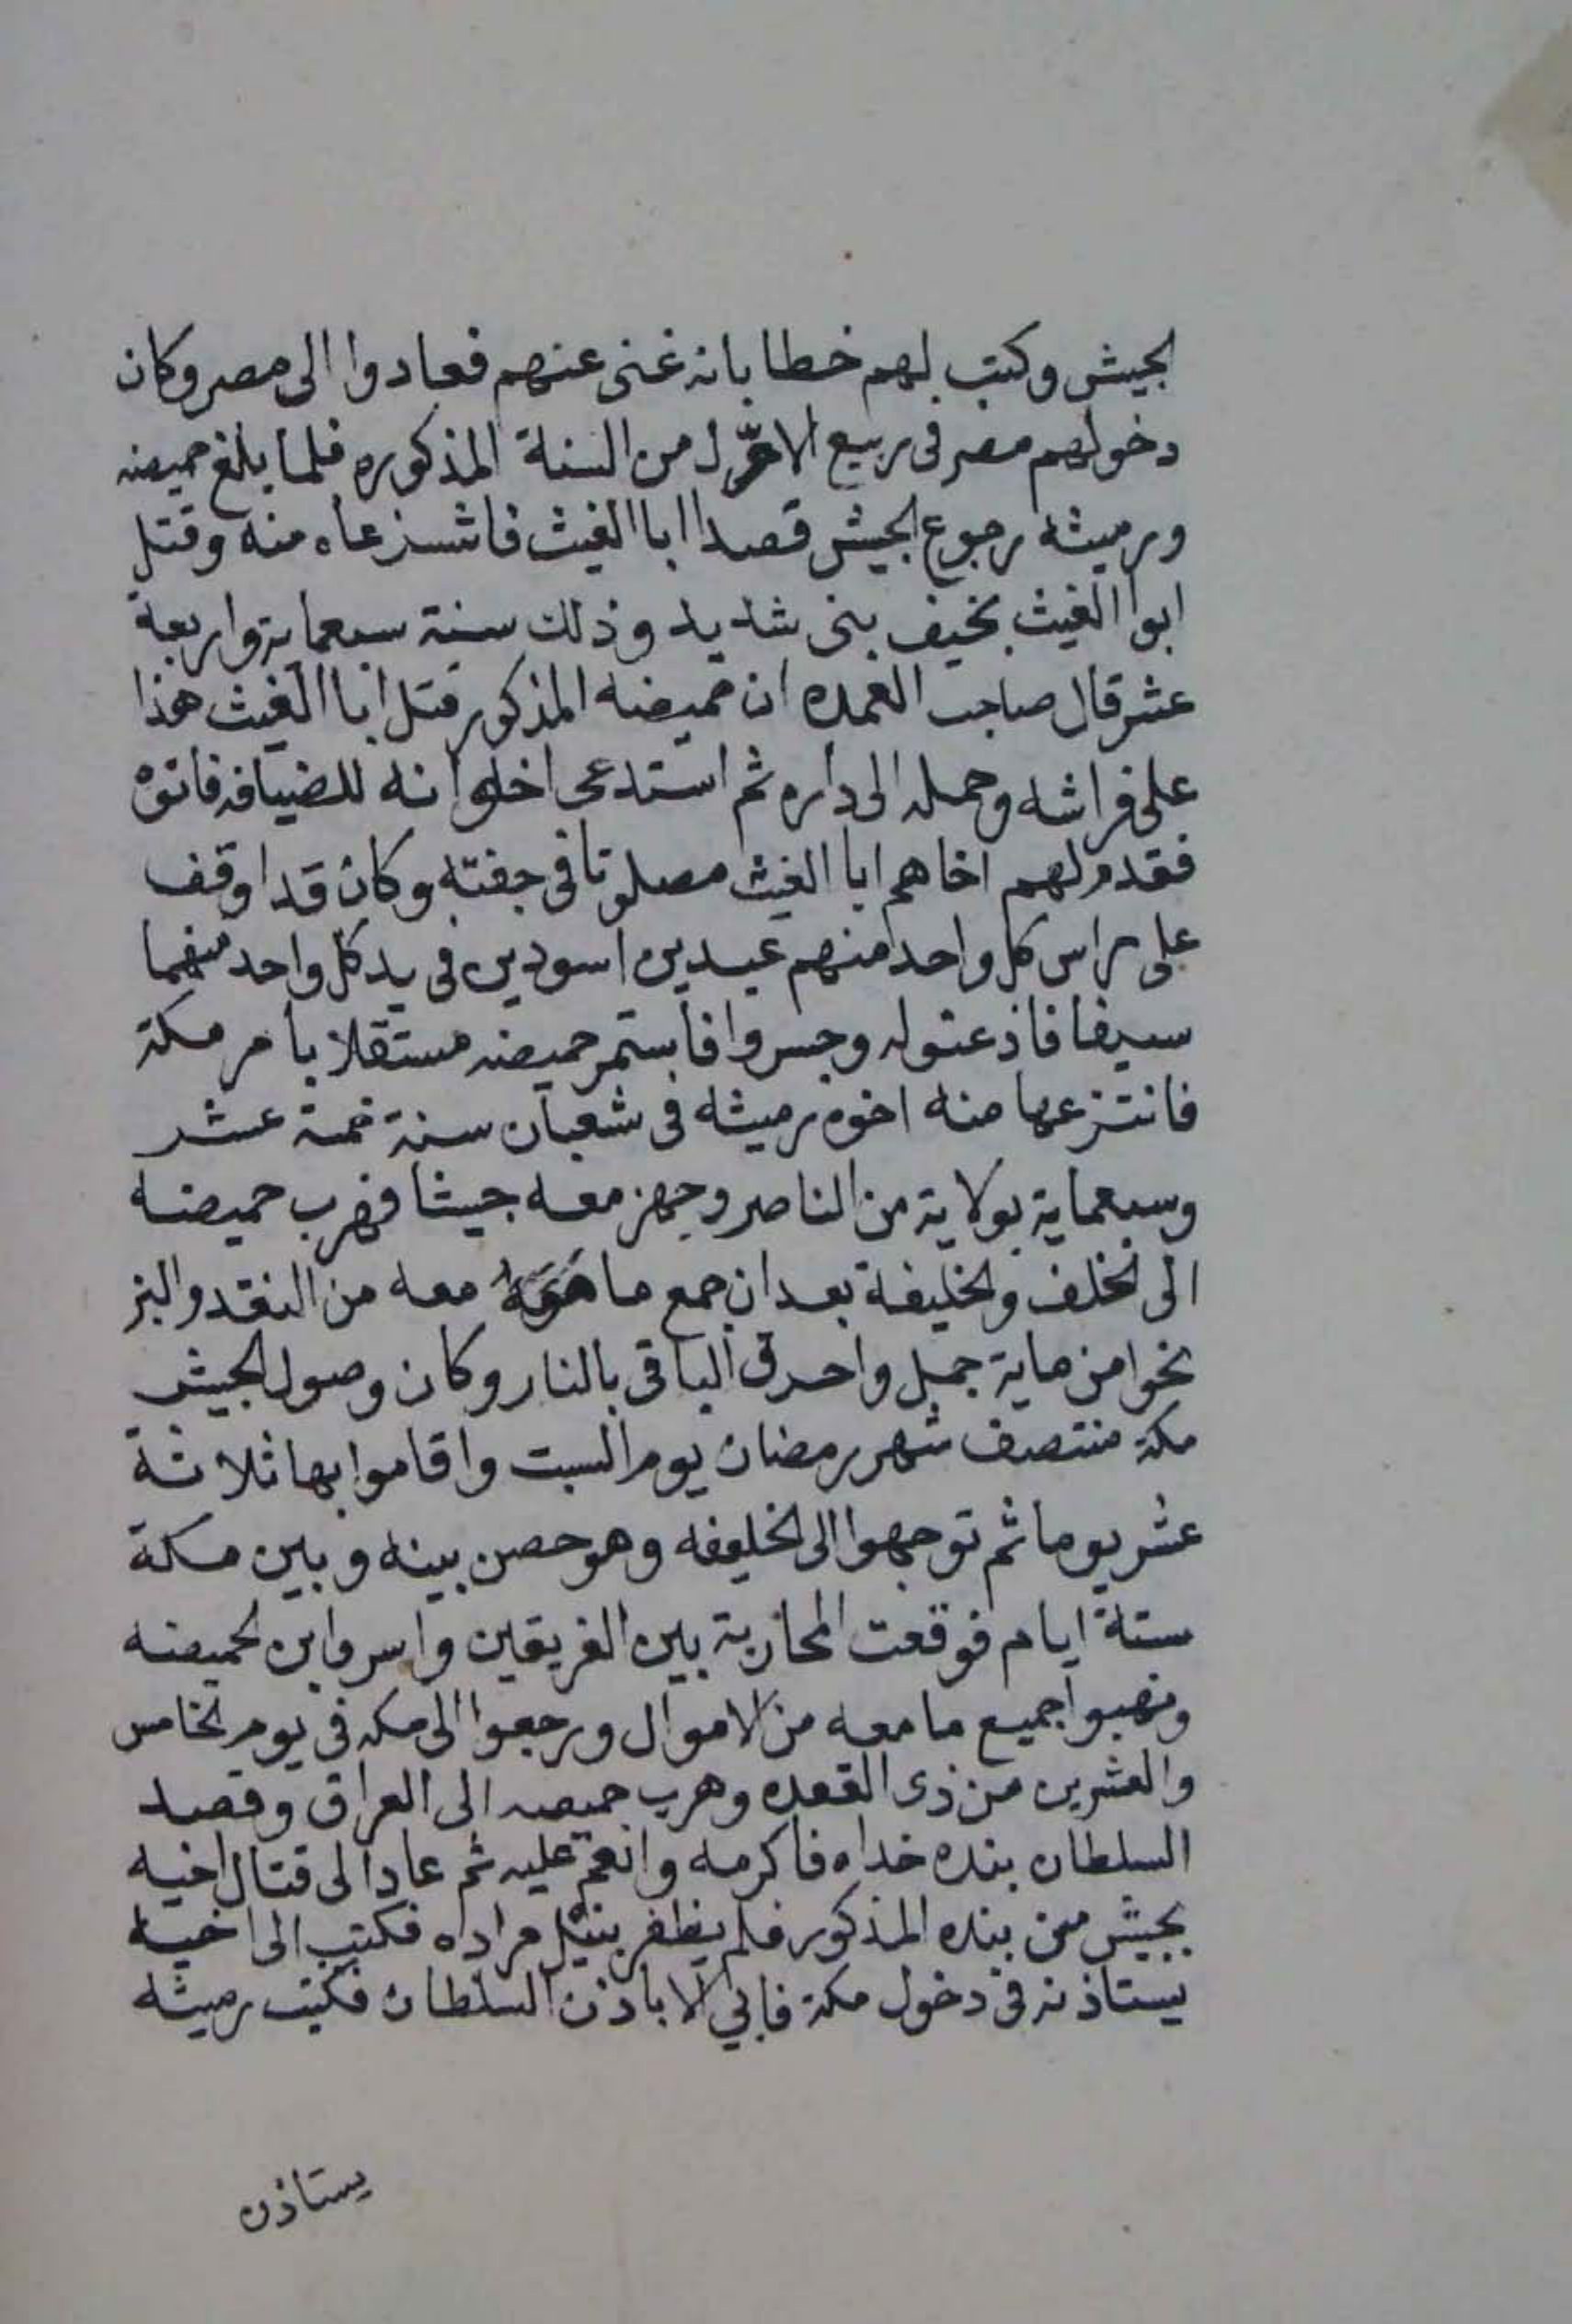 الجيش وكتب لهم خطا بانه غنى عنهم فعادوا الى مصر وكان
دخولهم مصر فى ربيع الاول من السنة المذكوره فلما بلغ حميضه
ورميثه رجوع الجيش قصدا ابا الغيث منه وقتل
ابوا الغيث بخيف بنى شديد وذلك سنة سبعماية واربعة
عشر قال صاحب العمده ان حميضه المذكور قتل ابا الغيث هذا
على فراشه وحمله الى داره ثم استدعى اخوانه للضيافه فاتوه
فقدم لهم اخاهم ابا الغيث مصلوتا فى جفنة وكان قد اوقف
على راس كل واحد منهم عبدين اسودين فى يد كل واحد منهما
سيفا فاذعنوله فاستمر حميضه مستقلا بامر مكة
فانتزعها منه اخوه رميثه فى شعبان سنة خمسة عشر
وسبعماية بولاية من الناصر وجهز معه جيشا فهرب حميضه
الى الخلف والخليفة بعد ان جمع ما معه من النقد والبز
نحوا من ماية جمل واحرق الباقى بالنار وكان وصول الجيش
مكة منتصف شهر رمضان يوم السبت واقاموا بها ثلاثة
عشر يوما ثم توجهوا الى الخليفه وهو حصن بينه وبين مكة
ستة ايام فوقعت المحاربة بين الفريقين واسروا ابن لحميضه
ونهبوا جميع ما معه من الاموال ورجعوا الى مكه فى يوم الخامس
والعشرين من ذى القعده وهرب حميضه الى العراق وقصد
السلطان بنده خداه فاكرمه وانعم عليه ثم عاد الى قتال اخيه
بجيش من بنده المذكور فلم يظفر بنيل مراده فكتب الى اخيه
يستاذنه فى دخول مكة فابي الا باذن السلطان فكتب رميثه
يستاذن